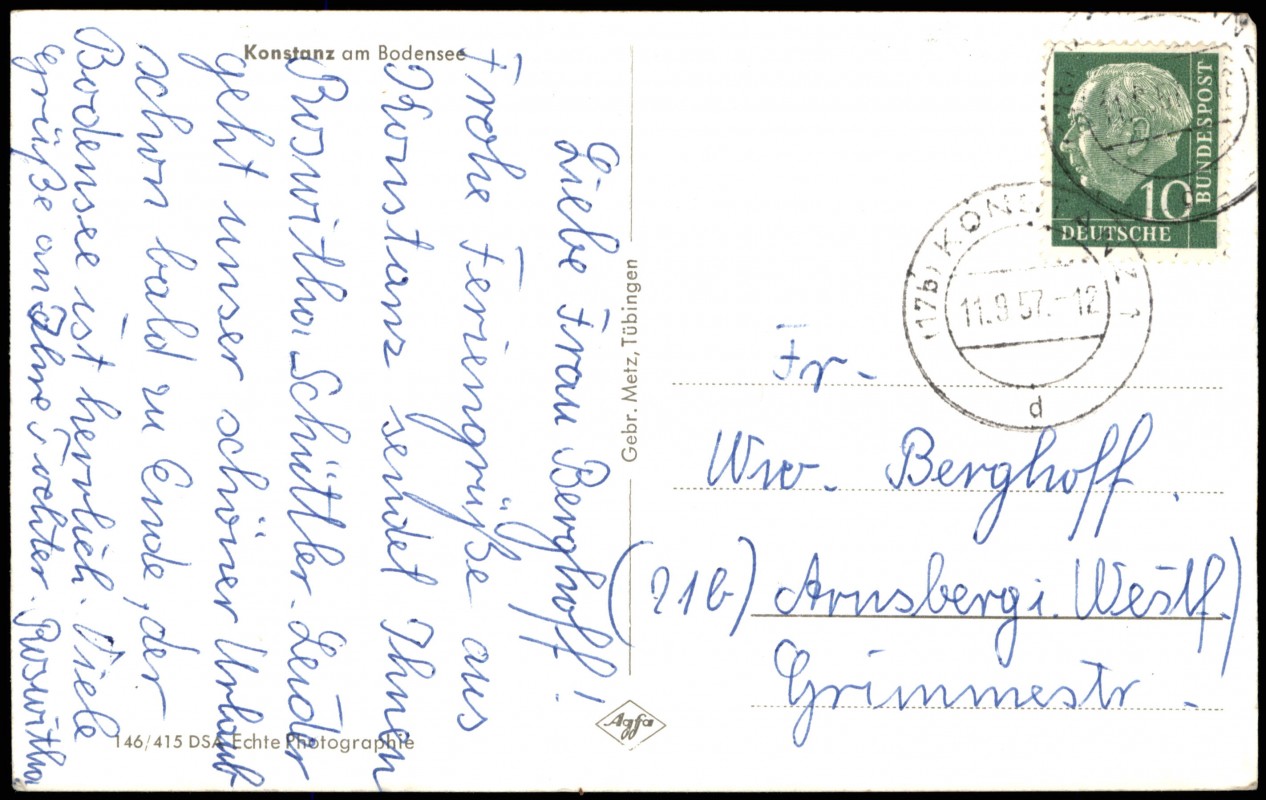 Konstanz am Bodensee
Liebe Frau Berghoff!
Frohe Feriengrüße aus
Konstanz sendet Ihnen
Roswitha Schüttler. Leider
geht unser schöner Urlaub
schon bald zu Ende, der
Bodensee ist herrlich. Viele
Grüße an Ihre Tochter. Roswitha
146/415 DSA Echte Photographie
Gebr. Metz, Tübingen
Agfa
10
DEUTSCHE
BUNDESPOST
(17b) KONSTANZ 1
11.9.57.-12
d
Fr.
Ww. Berghoff.
(21b) Arnsberg i. Westf.)
Grimmestr.